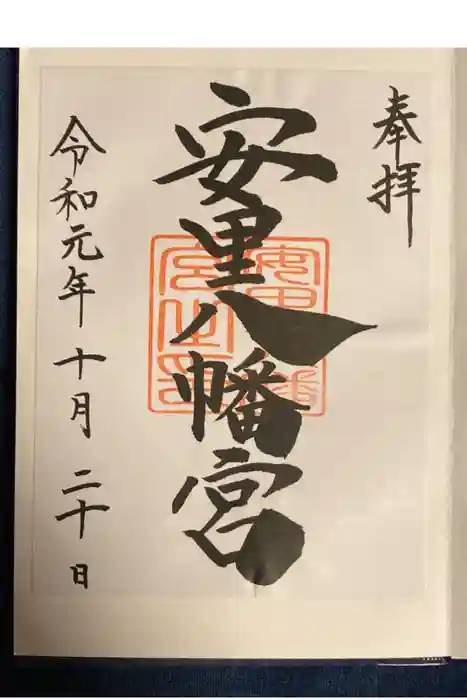 奉拝
安里八幡宮
令和元年十月二十日